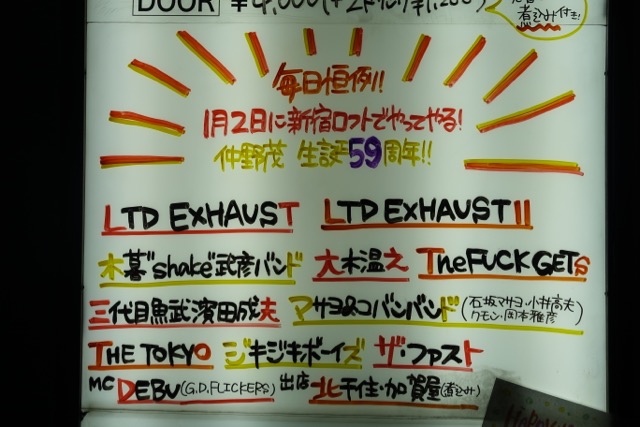 DOOR ¥4,000(+2ドリンク¥1,200)
煮込み付き!
毎日恒例!!
1月2日に新宿ロフトでやってやる!
仲野茂 生誕59周年!!
LTD EXHAUST LTD EXHAUST II
木暮"shake"武彦バンド 大木温之 The FUCK GETS
三代目魚武濱田成夫 マサヨ&コバンバンド(石坂マサヨ・小井高夫
クモン・岡本雅彦)
THE TOKYO ジキジキボーイズ ザ・ファスト
MC DEBU(G.D.FLICKERS) 出店 北千住・加賀屋(煮込み)